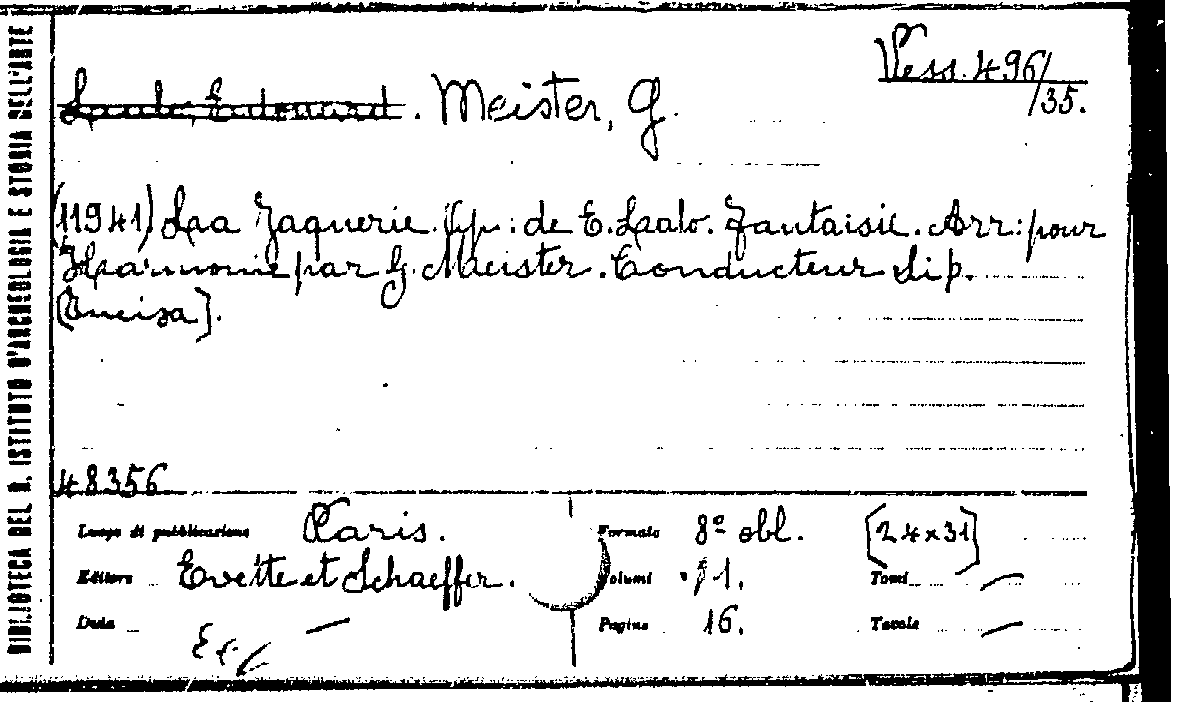 BIBLIOTECA DEL R. ISTITUTO D'ARCHEOLOGIA E STORIA DELL'ARTE
Vess. 496/35.
Lalo, Edouard. Meister, G.
(11941) La Jaquerie. Op: de E. Lalo. Fantaisie. Arr: pour
Harmonie par G. Meister. Conducteur Sip.
(Incisa].
48356
Luogo di pubblicazione Paris.
Formato 8º obl. [24x31]
Editore Evette et Schaeffer.
Volumi 1. Tomi —
Data —
Pagine 16. Tavole —